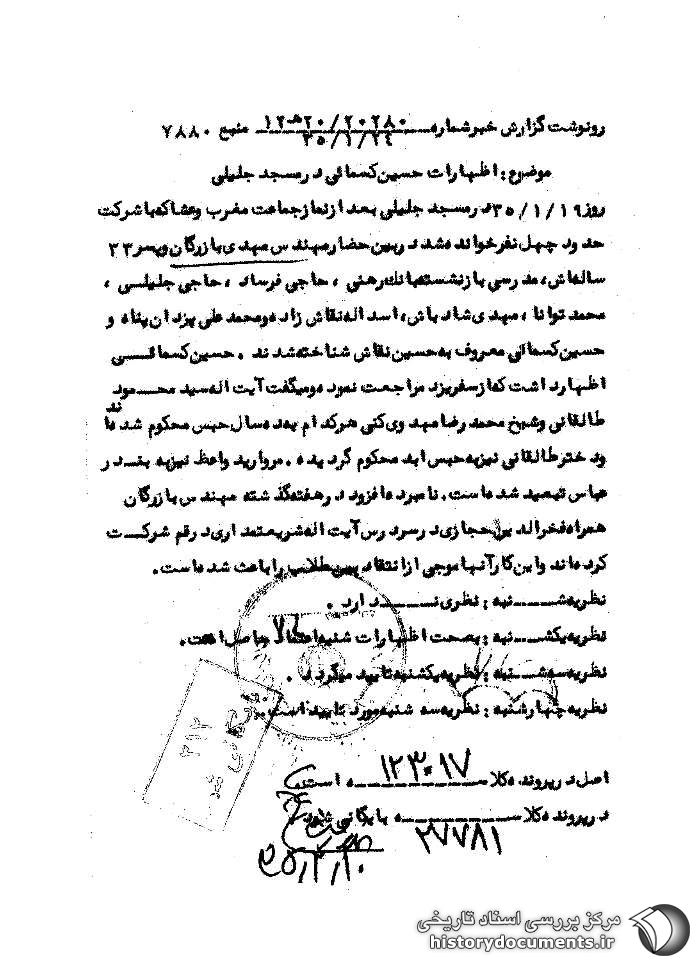 رونوشت گزارش خبر شماره ۲۰۲۸۰/۲۰هـ۱۲ منبع ۷۸۸۰
۳۵/۱/۲۴
موضوع: اظهارات حسین کسمائی در مسجد جلیلی
روز ۳۵/۱/۱۹ در مسجد جلیلی بعد از نماز جماعت مغرب و عشا که با شرکت
حدود چهل نفر خوانده شد در بین حضار مهندس مهدی بازرگان و پسر ۲۳
ساله‌اش، مدرسی بازنشسته بانک رهنی، حاجی فرساد، حاجی جلیلی،
محمد توانا، مهدی شاد باش، اسداله نقاش زاده و محمد علی یزدان پناه و
حسین کسمائی معروف به حسین نقاش شناخته شدند. حسین کسمائی
اظهار داشت که از سفر یزد مراجعت نموده و میگفت آیت اله سید محمود
طالقانی و شیخ محمد رضا مهدوی کنی هر کدام به ده سال حبس محکوم شده‌اند
و دختر طالقانی نیز به حبس ابد محکوم گردیده. مروارید واعظ نیز به بندر
عباس تبعید شده است. نامبرده افزود در هفته گذشته مهندس بازرگان
همراه فخرالدین حجازی در سر درس آیت اله شریعتمداری در قم شرکت
کرده‌اند و این کار آنها موجی از انتقاد بین طلاب را باعث شده است.
نظریه شنبه: نظری ندارد.
نظریه یکشنبه: بصحت اظهارات شنبه اعتماد حاصل است.
نظریه سه شنبه: نظریه یکشنبه تایید میگردد.
نظریه چهارشنبه: نظریه سه شنبه مورد تایید است.
۳۱۲
اصل در پرونده کلا ۱۲۳۰۱۷ ه است
در پرونده کلا ۲۷۷۸۱ ه بایگانی شود
۳۵/۲/۲۰
مرکز بررسی اسناد تاریخی
historydocuments.ir